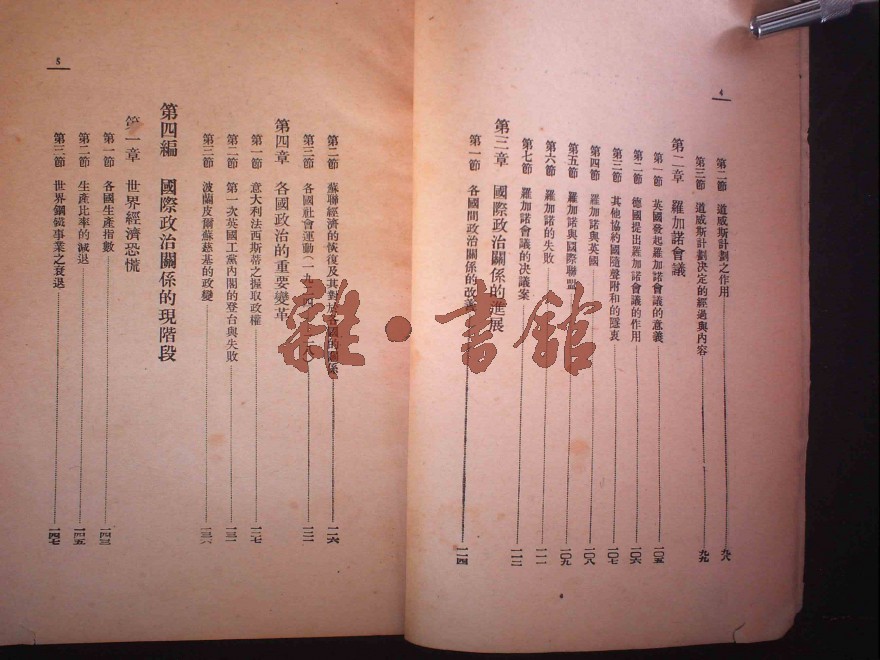 4
第二節 道威斯計劃之作用 九八
第三節 道威斯計劃決定的經過與內容 九九
第二章 羅加諾會議
第一節 英國發起羅加諾會議的意義 一〇五
第二節 德國提出羅加諾會議的作用 一〇六
第三節 其他協約國隨聲附和的隱衷 一〇七
第四節 羅加諾與英國 一〇八
第五節 羅加諾與國際聯盟 一〇九
第六節 羅加諾的失敗 一一一
第七節 羅加諾會議的決議案 一一二
第三章 國際政治關係的進展
第一節 各國間政治關係的改善 一一四
5
第二節 蘇聯經濟的恢復及其對於各國的關係 一一六
第三節 各國社會運動(一九二四 一二一
第四章 各國政治的重要變革
第一節 意大利法西斯蒂之握取政權 一二七
第二節 第一次英國工黨內閣的登台與失敗 一三一
第三節 波蘭皮爾蘇慈基的政變 一三六
第四編 國際政治關係的現階段
第一章 世界經濟恐慌
第一節 各國生產指數 一四三
第二節 生產比率的減退 一四五
第三節 世界鋼鐵事業之衰退 一四七
雜·書館